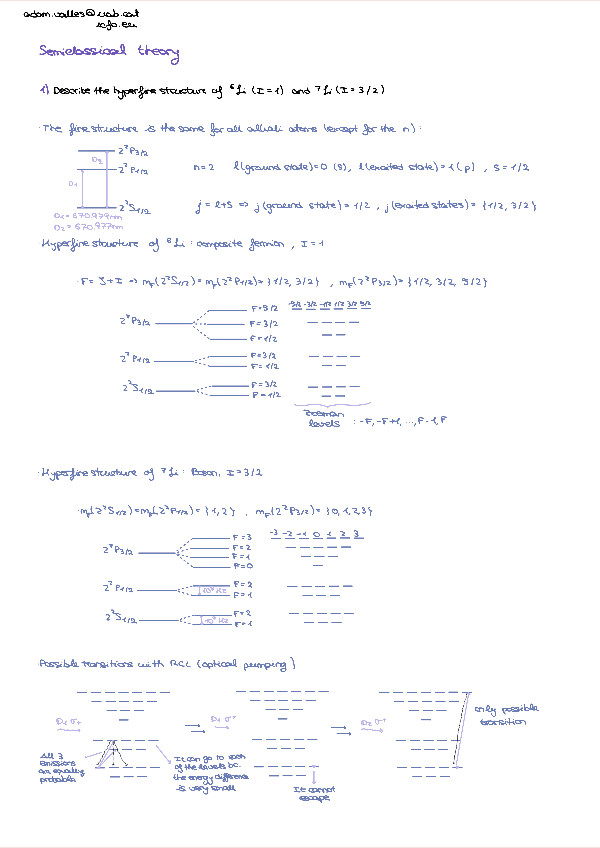 adam.valles@uab.cat
icfo.eu
Semiclassical theory
1) Describe the hyperfine structure of ⁶Li (I=1) and ⁷Li (I=3/2)
·The fine structure is the same for all alkali atoms (except for the n):
2²P3/2
D2
2²P1/2
n=2 l(ground state)=0 (s), l(excited state)=1(p), s=1/2
D1
2²S1/2
j=l+s ⇒ j(ground state)=1/2, j(excited states)={1/2, 3/2}
D1=670.979nm
D2=670.977nm
Hyperfine structure of ⁶Li: composite fermion, I=1
·F=J+I ⇒ mF(2²S1/2)=mF(2²P1/2)={1/2, 3/2}, mF(2²P3/2)={1/2, 3/2, 5/2}
F=5/2 -5/2 -3/2 -1/2 1/2 3/2 5/2
2²P3/2 F=3/2
F=1/2
2²P1/2 F=3/2
F=1/2
2²S1/2 F=3/2
F=1/2
Zeeman
levels : -F, -F+1, ..., F-1, F
·Hyperfine structure of ⁷Li: Boson, I=3/2
·mF(2²S1/2)=mF(2²P1/2)={1,2}, mF(2²P3/2)={0,1,2,3}
F=3 -3 -2 -1 0 1 2 3
2²P3/2 F=2
F=1
F=0
2²P1/2 F=2
F=1
2²S1/2 F=2
F=1
Possible transitions with RCL (optical pumping)
only possible
transition
D1 σ+ D1 σ+ D2 σ+
All 3
emissions
are equally
probable
It can go to each
of the levels bc.
the energy difference
is very small
It cannot
escape